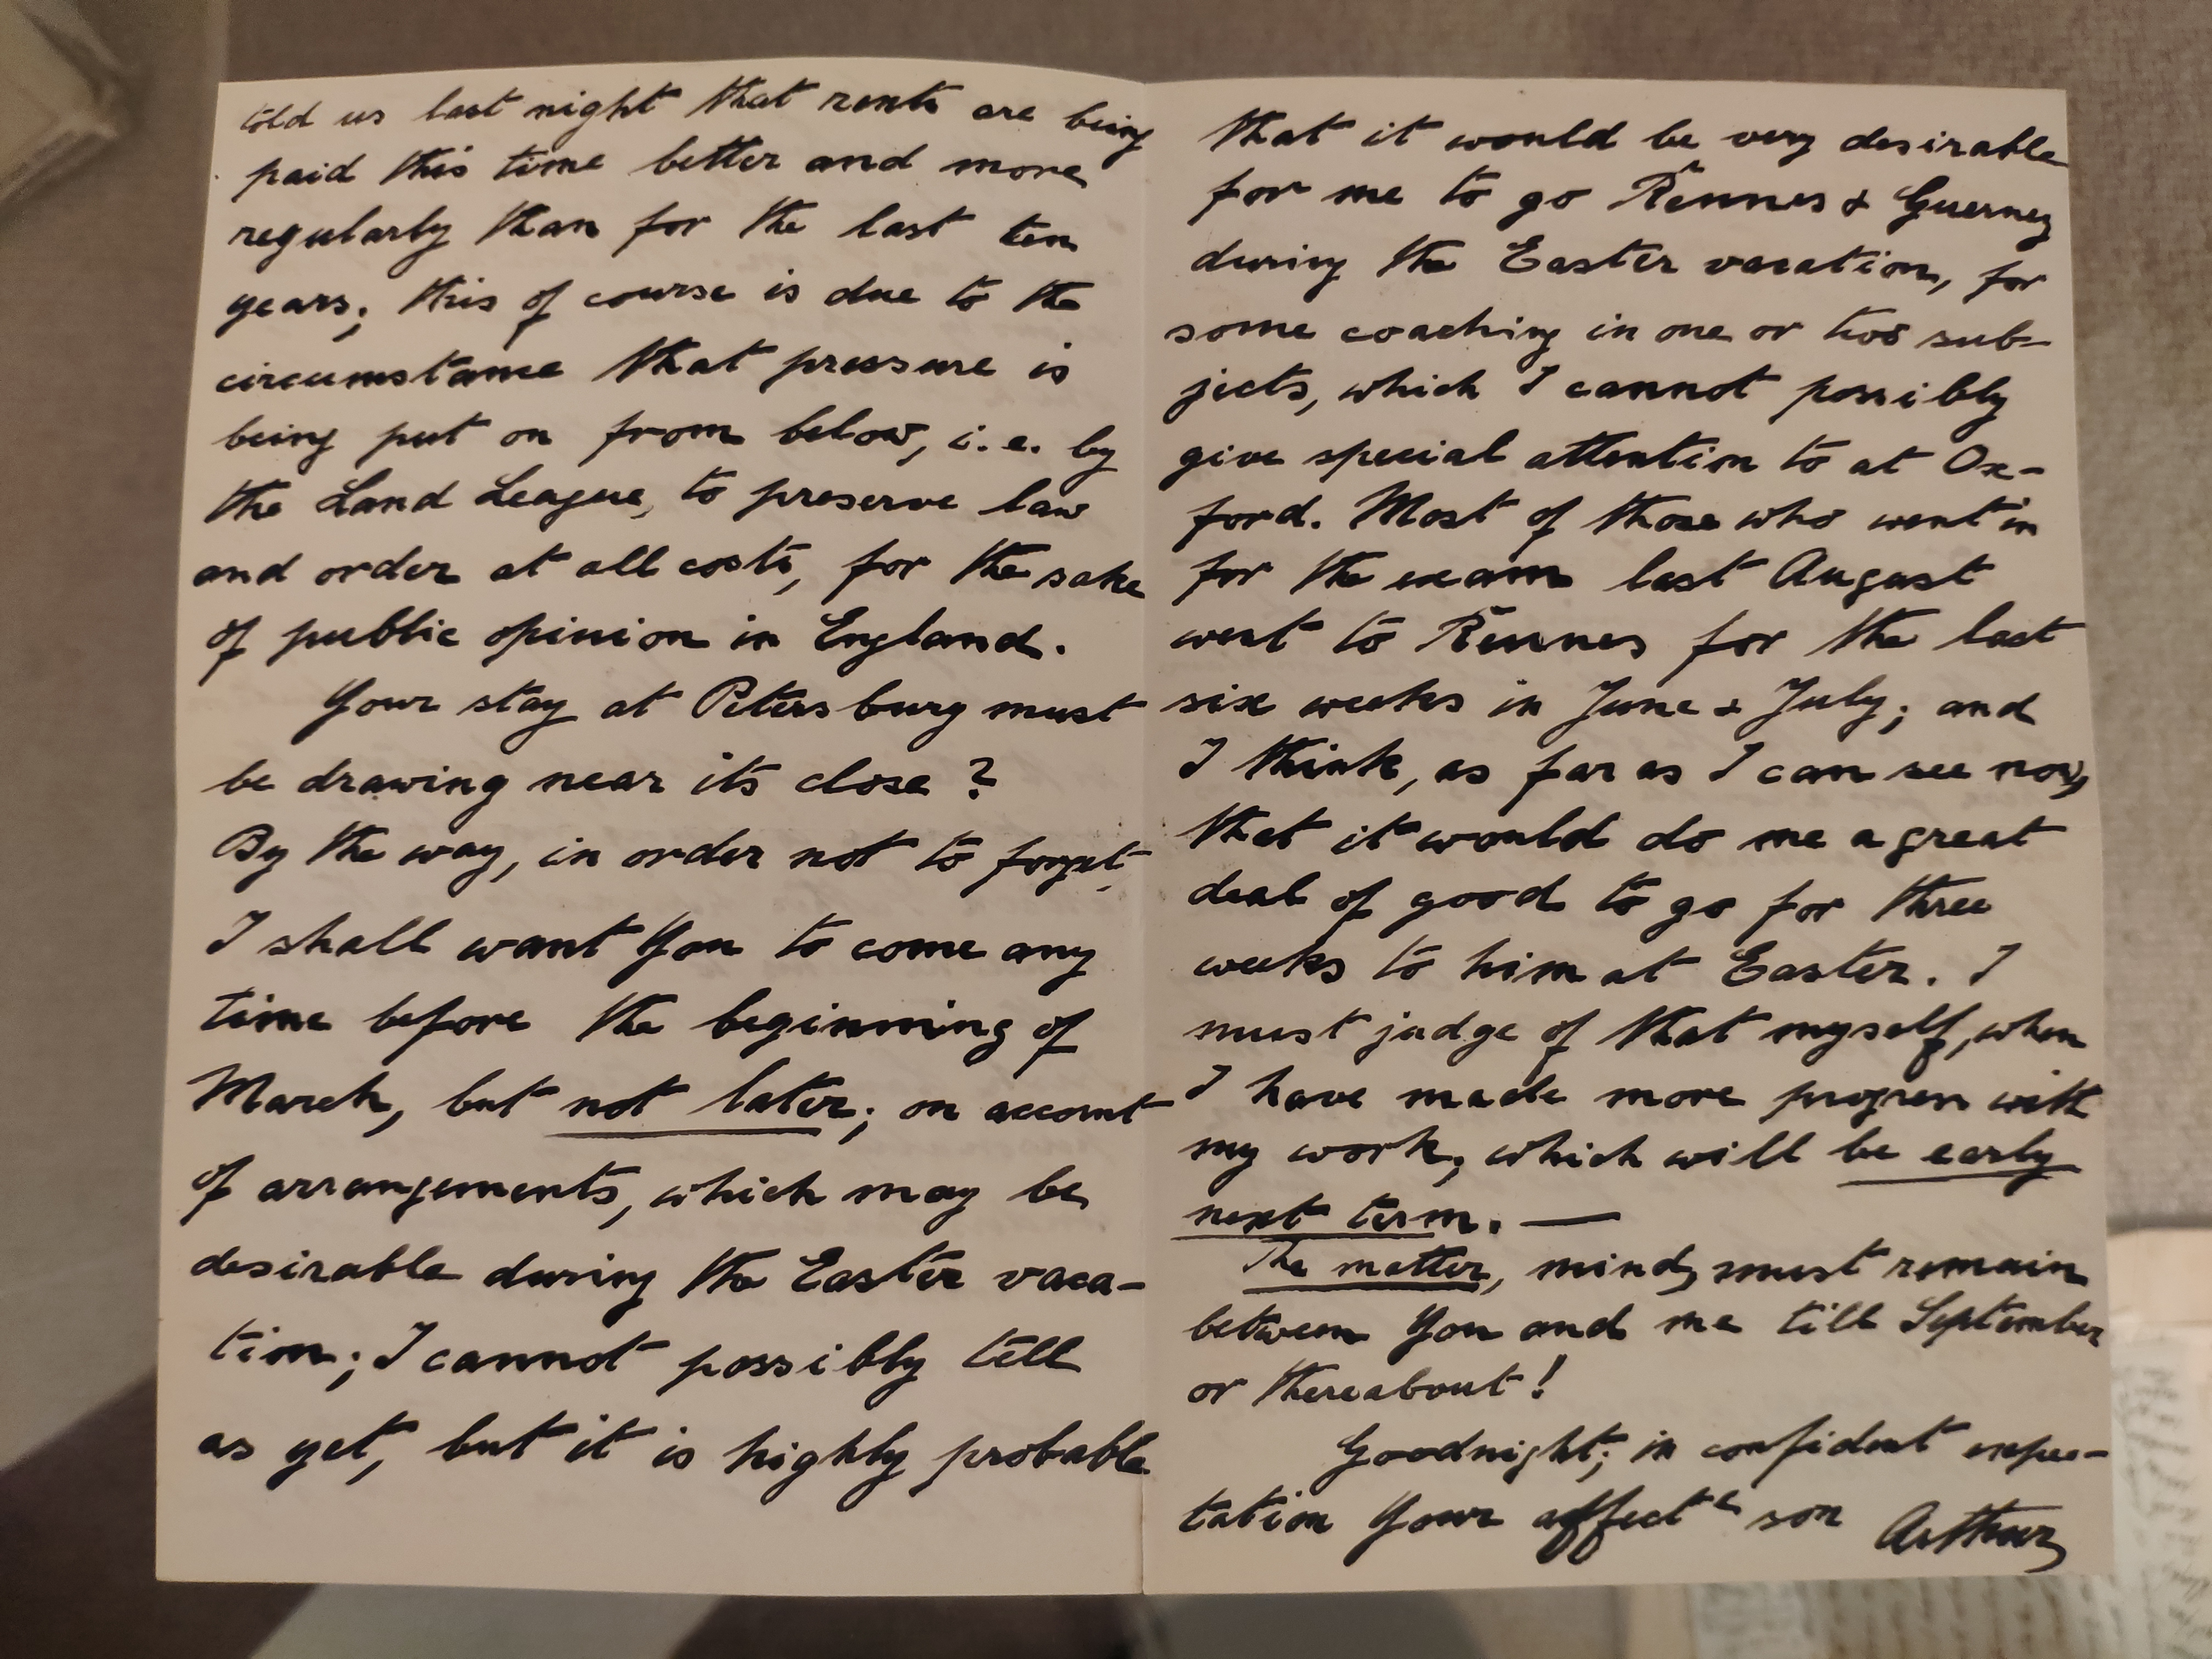 told us last night that rents are being
paid this time better and more
regularly than for the last ten
years; this of course is due to the
circumstance that pressure is
being put on from below, i.e. by
the Land League, to preserve law
and order at all costs, for the sake
of public opinion in England.
Your stay at Petersburg must
be drawing near its close?
By the way, in order not to forget,
I shall want You to come any
time before the beginning of
March, but not later; on account
of arrangements, which may be
desirable during the Easter vaca-
tion; I cannot possibly tell
as yet, but it is highly probable
that it would be very desirable
for me to go Rennes & Guerney
during the Easter vacation, for
some coaching in one or two sub-
jects, which I cannot possibly
give special attention to at Ox-
ford. Most of those who went in
for the exam last August
went to Rennes for the last
six weeks in June & July; and
I think, as far as I can see now,
that it would do me a great
deal of good to go for three
weeks to him at Easter. I
must judge of that myself, when
I have made more progress with
my work, which will be early
next term. —
The matter, mind, must remain
between You and me till September
or thereabout!
Goodnight; in confident expec-
tation Your affectᵉ son Arthur